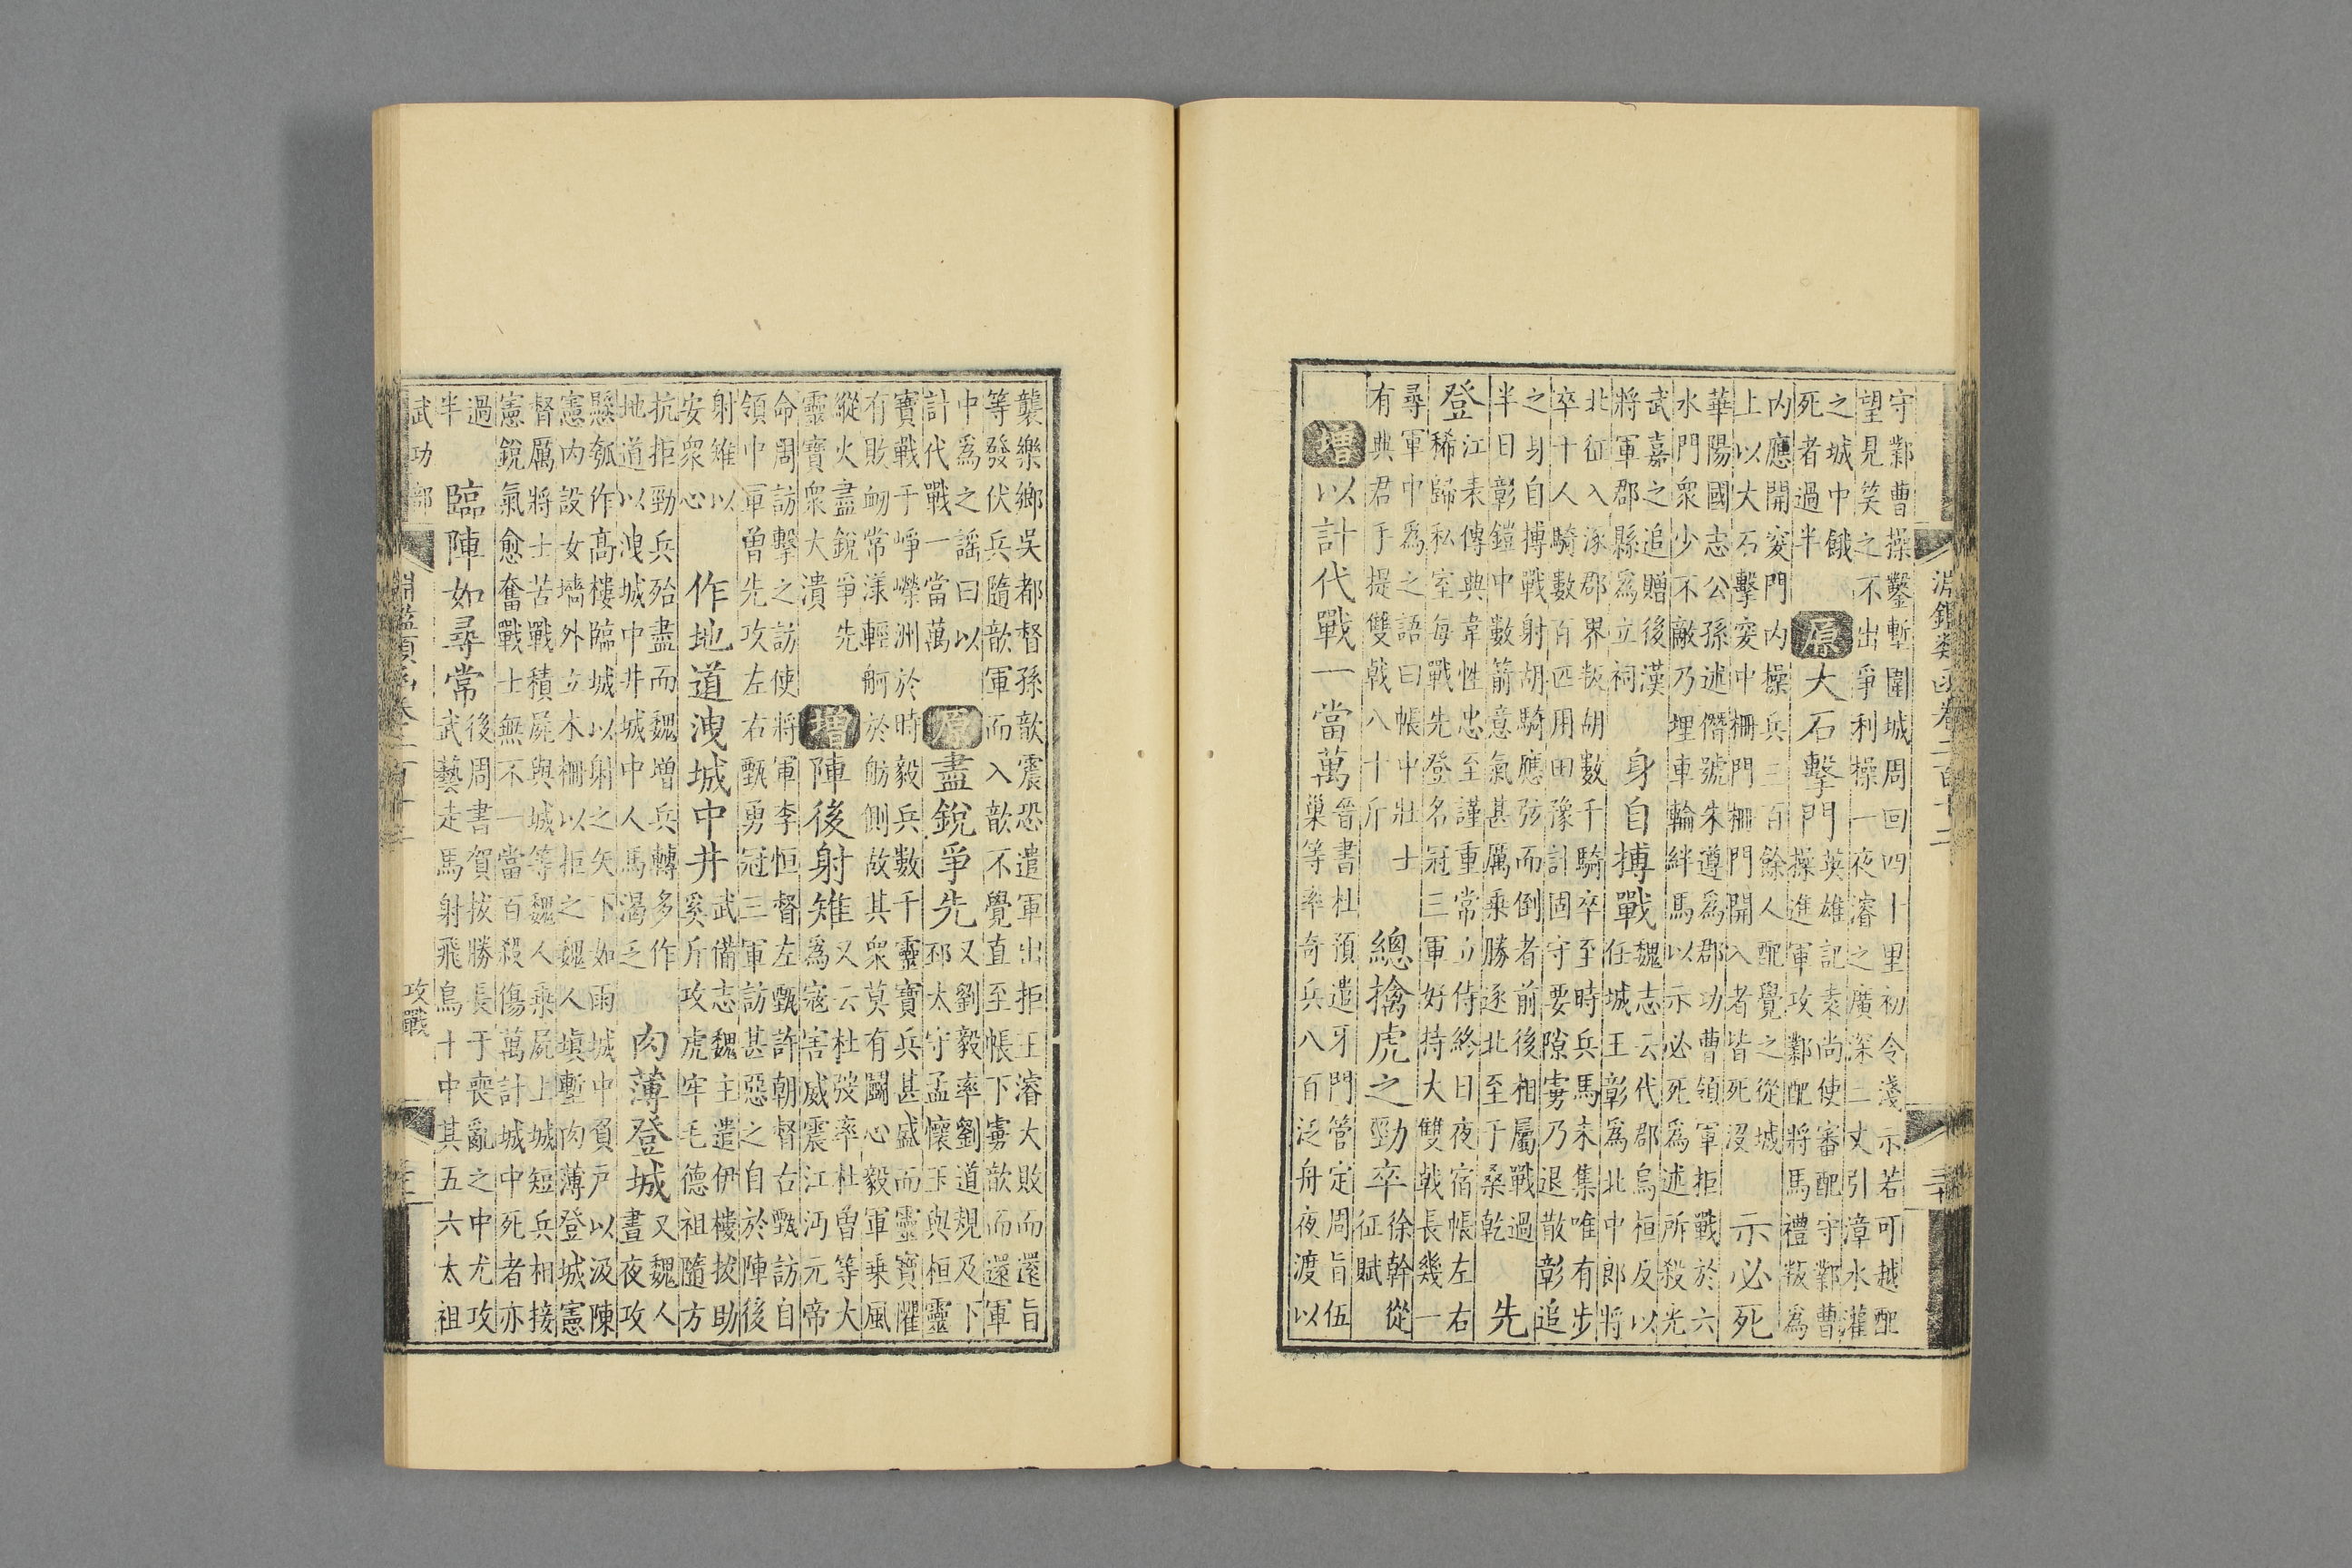 淵鑑類函卷二百十二
二十
守鄴曹操鑿塹圍城周回四十里初令淺示若可越配
望見笑之不出爭利操一夜濬之廣深二丈引漳水灌
之城中餓
死者過半
原 大石擊門
英雄記袁尚使審配守鄴曹
操進軍攻鄴配將馬禮叛為
内應開突門内操兵三百餘人配覺之從城
上以大石擊突中柵門柵門開入者皆死没
示必死
華陽國志公孫述僭號朱遵為郡功曹領軍拒戰於六
水門衆少不敵乃埋車輪絆馬以示必死為述所殺光
武嘉之追贈後漢
將軍郡縣為立祠
身自搏戰
魏志云代郡烏桓反以
任城王彰為北中郎將
北征入涿郡界叛胡數千騎卒至時兵馬未集唯有步
卒十人騎數百匹用田豫計固守要隙虜乃退散彰追
之身自搏戰射胡騎應弦而倒者前後相屬戰過
半日彰鎧中數箭意氣甚厲乘勝逐北至于桑乾
先
登
江表傳典韋性忠至謹重常立侍終日夜宿帳左右
稀歸私室每戰先登名冠三軍好持大雙戟長幾一
尋軍中為之語曰帳中壯士
有典君手提雙戟八十斤
總擒虎之勁卒
徐幹從
征賦
增 以計代戰一當萬
晉書杜預遣牙門管定周旨伍
巢等率奇兵八百泛舟夜渡以
襲樂鄉吳都督孫歆震恐遣軍出拒王濬大敗而還旨
等發伏兵隨歆軍而入歆不覺直至帳下虜歆而還軍
中為之謡曰以
計代戰一當萬
原 盡銳爭先
又劉毅率劉道規及下
邳太守孟懷玉與桓靈
寶戰于崢嶸洲於時毅兵數千靈寶兵甚盛而靈寶懼
有敗衂常漾輕舸於舫側故其衆莫有鬬心毅軍乘風
縱火盡銳爭先
靈寶衆大潰
增 陣後射雉
又云杜弢率杜曾等大
為寇害威震江沔元帝
命周訪擊之訪使將軍李恒督左甄許朝督右甄訪自
領中軍曾先攻左右甄勇冠三軍訪甚惡之自於陣後
射雉以
安衆心
作地道洩城中井
武備志魏主遣伊樓拔助
奚斤攻虎牢毛德祖隨方
抗拒勁兵殆盡而魏增兵轉多作
地道以洩城中井城中人馬渴乏
肉薄登城
又魏人
晝夜攻
懸瓠作高樓臨城以射之矢下如雨城中負户以汲陳
憲内設女墻外立木柵以拒之魏人塡塹肉薄登城憲
督厲將士苦戰積屍與城等魏人乘屍上城短兵相接
憲銳氣愈奮戰士無不一當百殺傷萬計城中死者亦
過
半
臨陣如尋常
後周書賀拔勝長于喪亂之中尤攻
武藝走馬射飛鳥十中其五六太祖
武功部
淵鑑類函卷二百十二
攻戰